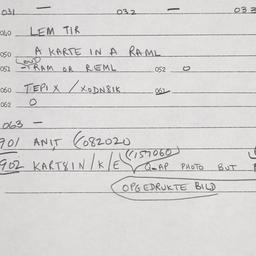 031 — 032 — 033
040 LEM TIR
050 A KARTE IN A RAML
051 -TRAM OR REML 052 O
060 TEPIX / XODN8IK 061
062 O
063 —
901 ANIT (082020
902 KART8IN/K/E ((157060) Q-AP PHOTO BUT
OPGEDRUKTE BILD